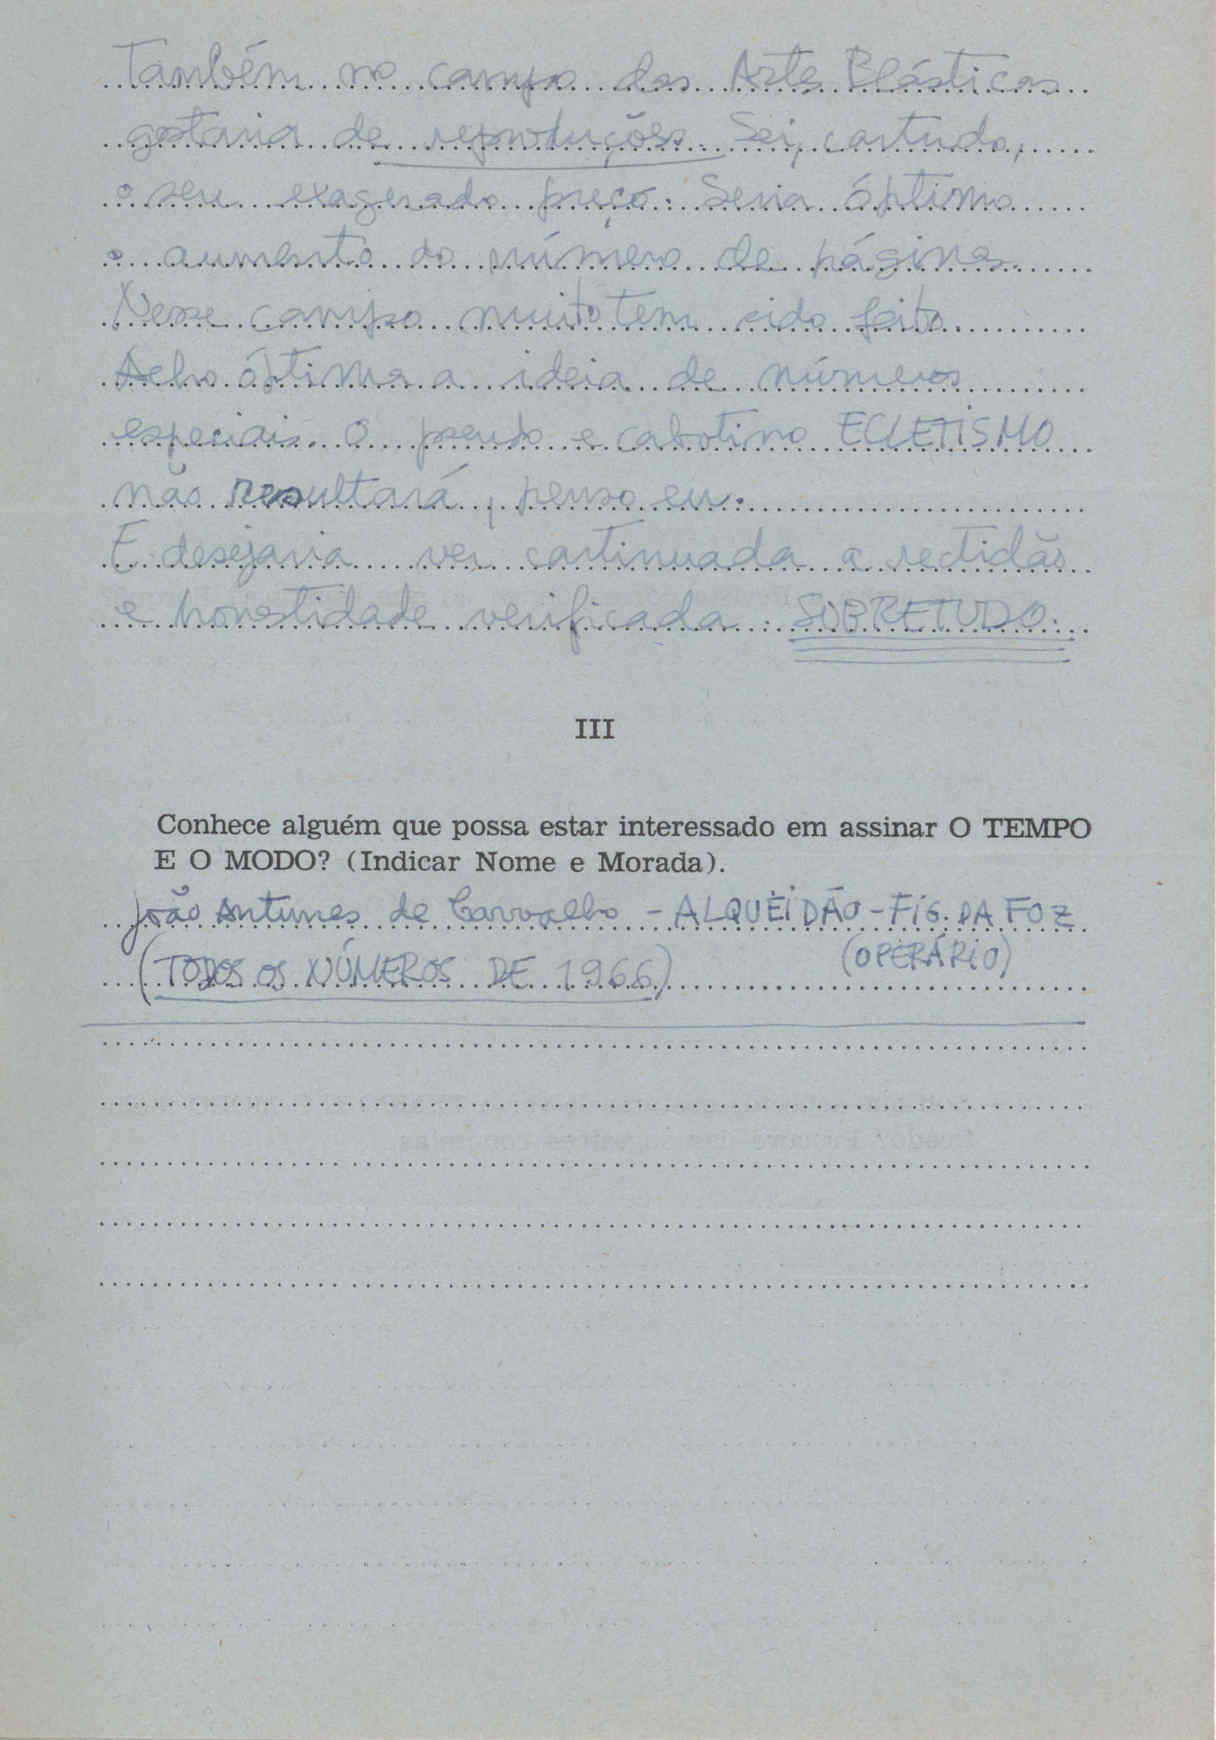 Também no campo das Artes Plásticas
gostaria de reproduções. Sei, contudo,
o seu exagerado preço. Seria óptimo
o aumento do número de páginas.
Nesse campo muito tem sido feito.
Acho óptima a ideia de números
especiais. O pseudo e cabotino ECLETISMO
não resultará, penso eu.
E desejaria ver continuada a rectidão
e honestidade verificada: SOBRETUDO.
III
Conhece alguém que possa estar interessado em assinar O TEMPO
E O MODO? (Indicar Nome e Morada).
João Antunes de Carvalho - ALQUEIDÃO - FIG. DA FOZ
(TODOS OS NÚMEROS DE 1966) (OPERÁRIO)